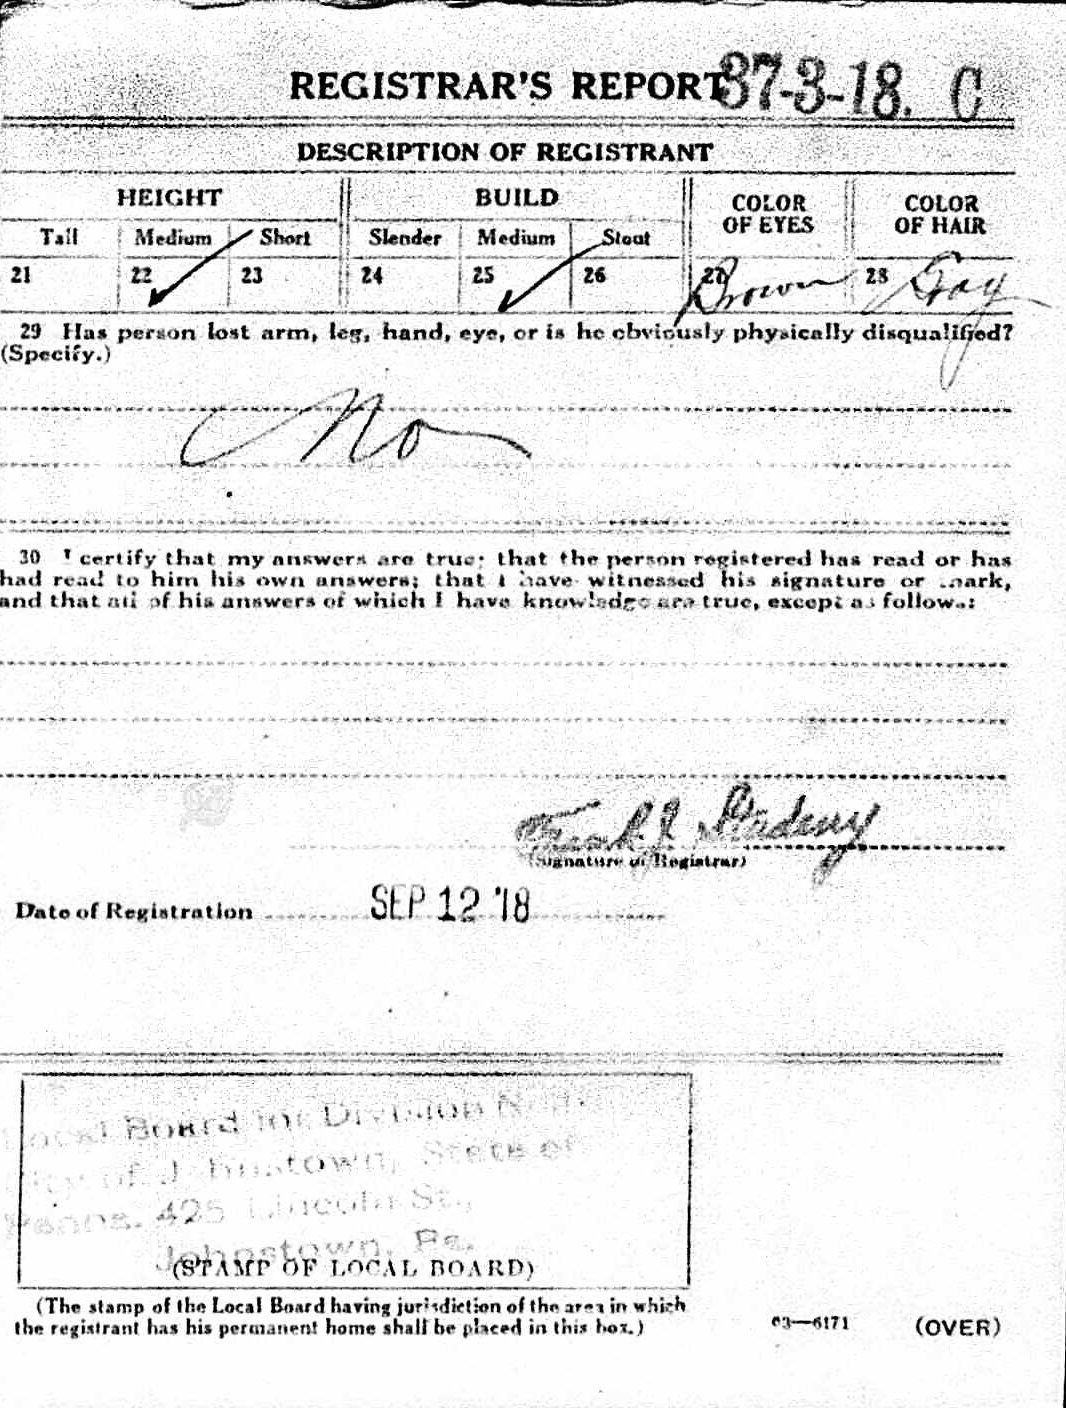 REGISTRAR'S REPORT 37-3-18. C
DESCRIPTION OF REGISTRANT
HEIGHT BUILD COLOR OF EYES COLOR OF HAIR
Tall Medium Short Slender Medium Stout
21 22 23 24 25 26 27 Brown 28 Gray
29 Has person lost arm, leg, hand, eye, or is he obviously physically disqualified?
(Specify.)
No
30 I certify that my answers are true; that the person registered has read or has
had read to him his own answers; that I have witnessed his signature or mark,
and that all of his answers of which I have knowledge are true, except as follows:
Frank J.
(Signature of Registrar)
Date of Registration SEP 12 '18
Local Board for Division
City of Johnstown, State of
Penna. 425 Lincoln St.,
Johnstown, Pa.
(STAMP OF LOCAL BOARD)
(The stamp of the Local Board having jurisdiction of the area in which
the registrant has his permanent home shall be placed in this box.)
03—6171 (OVER)